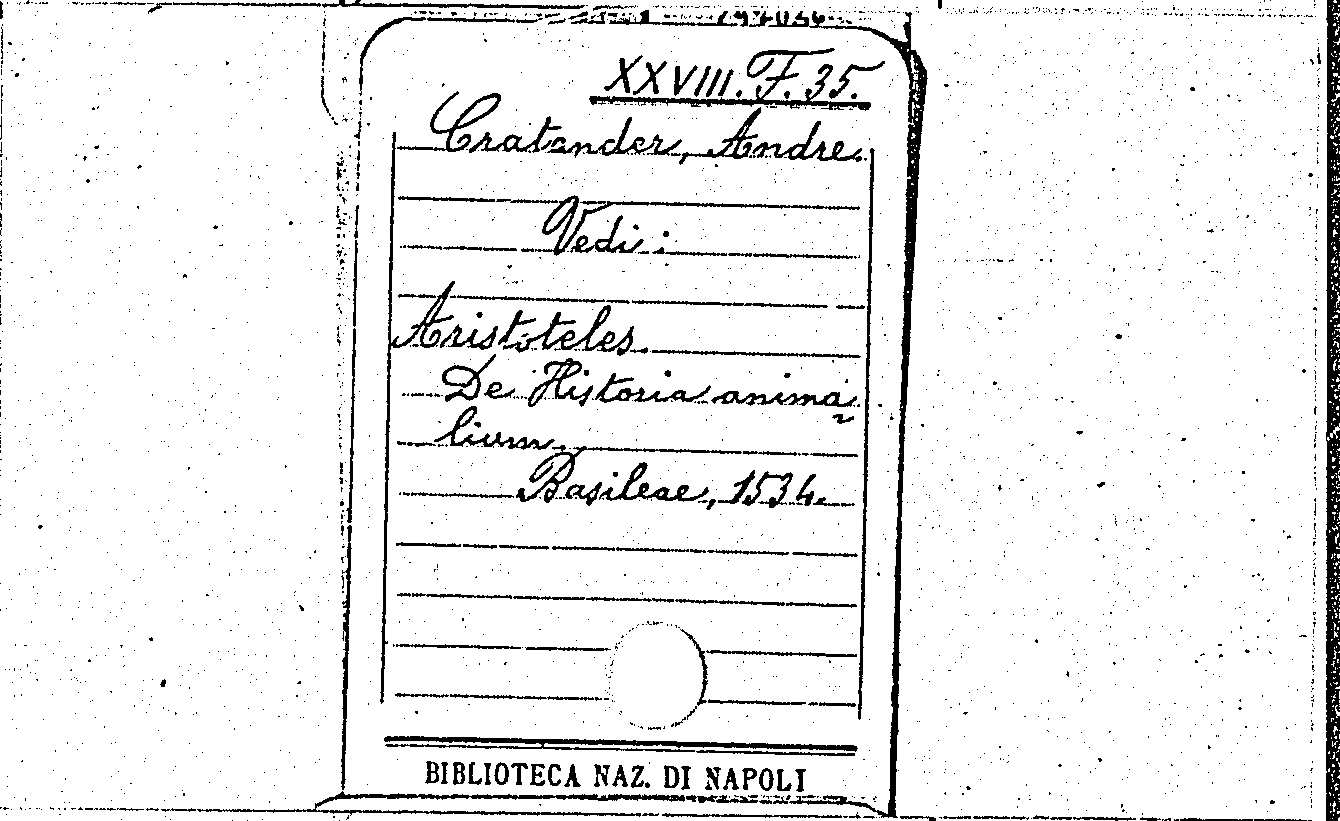 XXVIII. F. 35.
Cratander, Andre.
Vedi:
Aristoteles.
De Historia anima-
lium.
Basileae, 1534.
BIBLIOTECA NAZ. DI NAPOLI